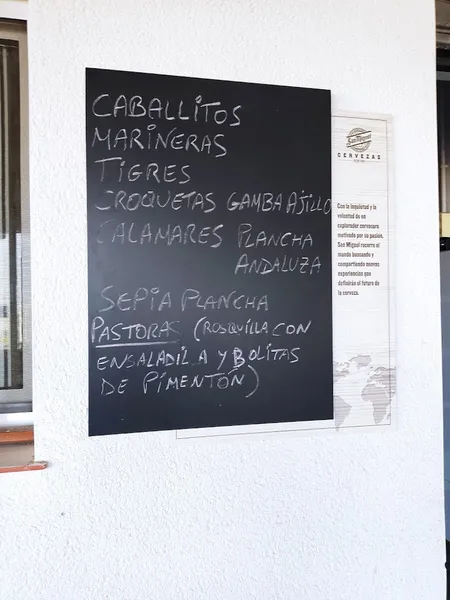 CABALLITOS
MARINERAS
TIGRES
CROQUETAS GAMBA AJILLO
CALAMARES PLANCHA
ANDALUZA
SEPIA PLANCHA
PASTORAS (ROSQUILLA CON
ENSALADILLA Y BOLITAS
DE PIMENTÓN)
San Miguel
CERVEZAS
Con la inquietud y la
voluntad de un
explorador cervecero
motivado por su pasión,
San Miguel recorre el
mundo buscando y
compartiendo nuevas
experiencias que
definirán el futuro de
la cerveza.